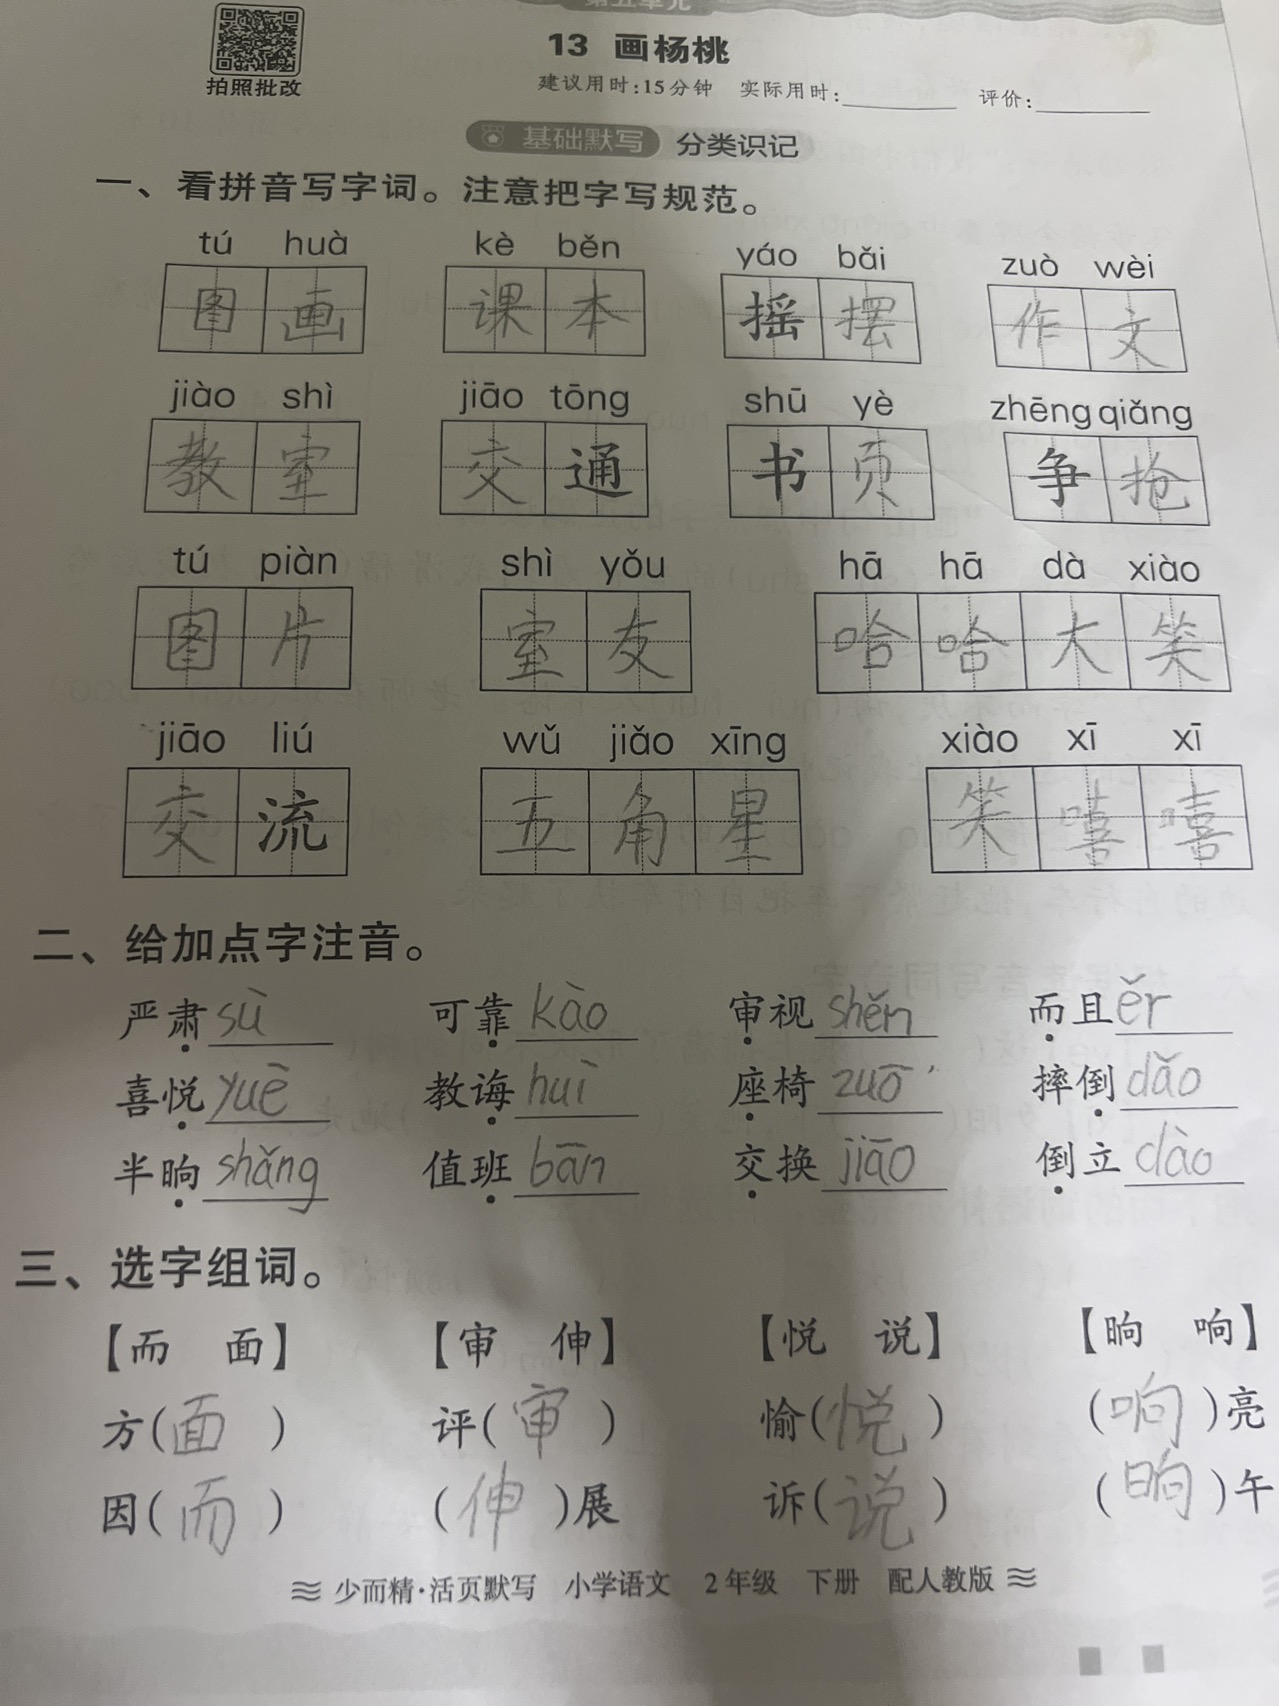 第五单元
拍照批改
13 画杨桃
建议用时:15分钟 实际用时:________ 评价:________
基础默写 分类识记
一、看拼音写字词。注意把字写规范。
tú huà kè běn yáo bǎi zuò wèi
图画 课本 摇摆 作文
jiào shì jiāo tōng shū yè zhēng qiǎng
教室 交通 书页 争抢
tú piàn shì yǒu hā hā dà xiào
图片 室友 哈哈大笑
jiāo liú wǔ jiǎo xīng xiào xī xī
交流 五角星 笑嘻嘻
二、给加点字注音。
严肃 sù 可靠 kào 审视 shěn 而且 ěr
喜悦 yuè 教诲 huì 座椅 zuō 摔倒 dǎo
半晌 shǎng 值班 bān 交换 jiāo 倒立 dào
三、选字组词。
【而 面】 【审 伸】 【悦 说】 【晌 响】
方(面) 评(审) 愉(悦) (响)亮
因(而) (伸)展 诉(说) (晌)午
少而精·活页默写 小学语文 2年级 下册 配人教版